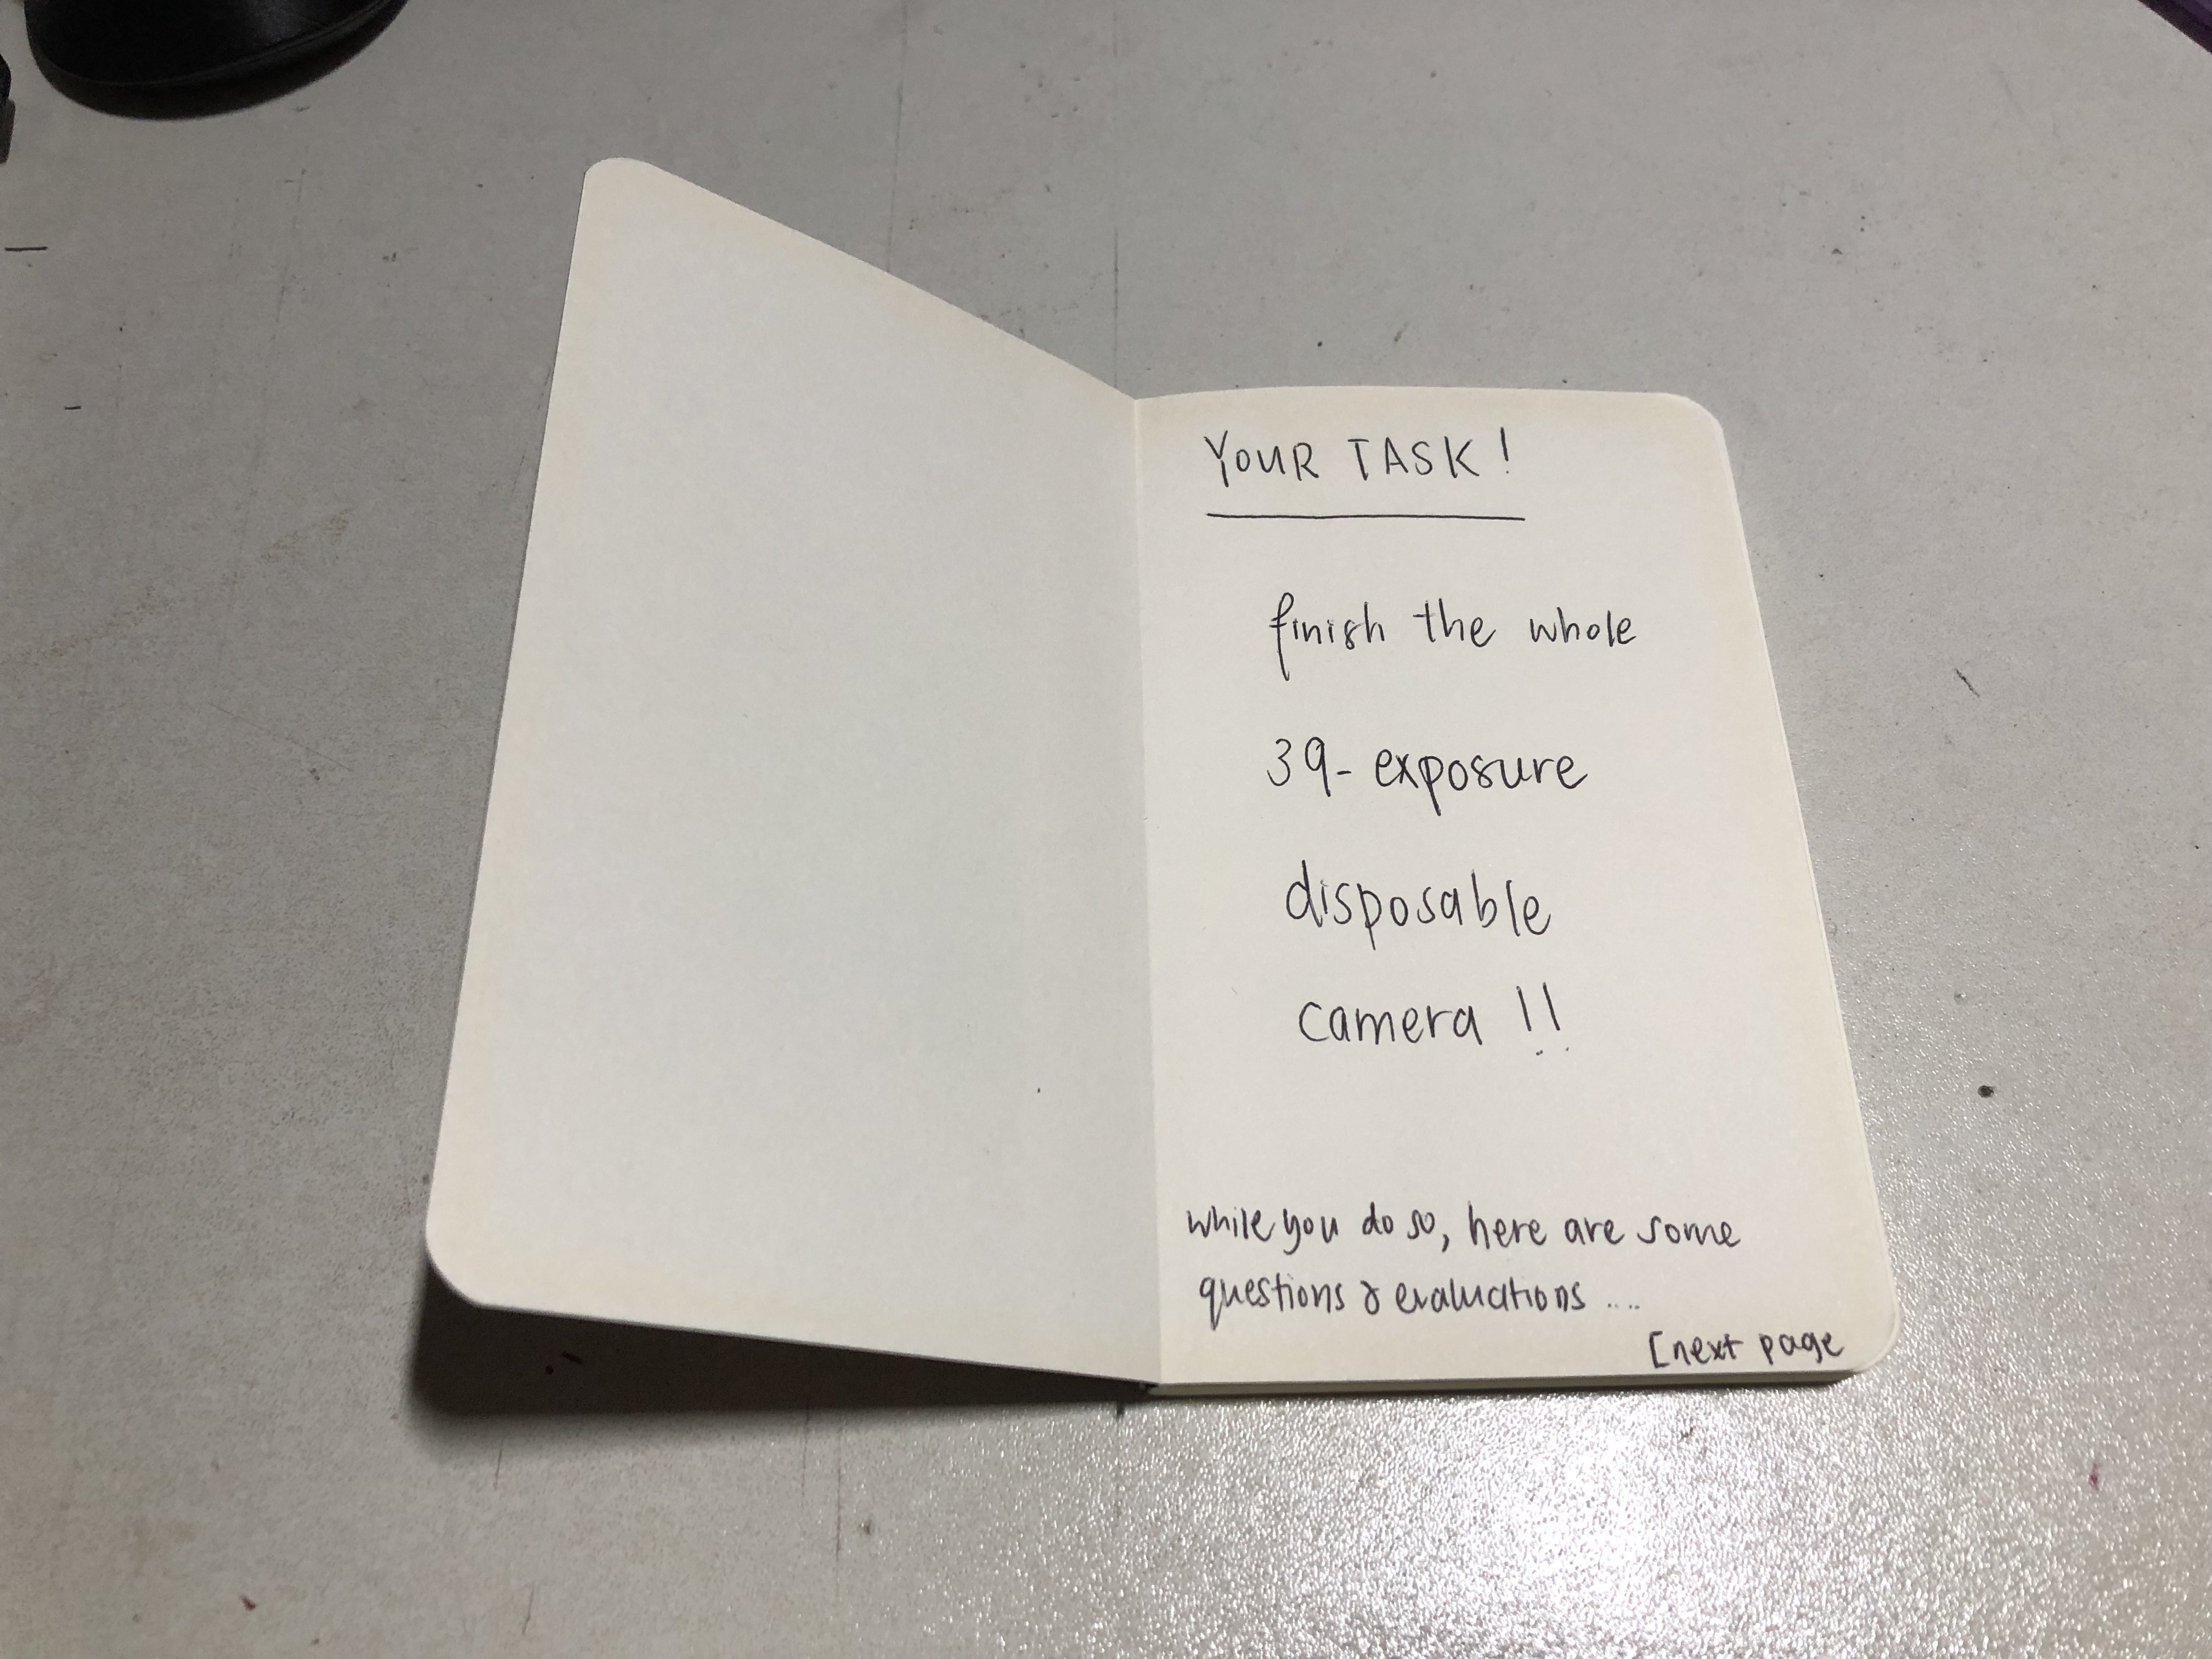 YOUR TASK!
finish the whole
39-exposure
disposable
camera !!
while you do so, here are some
questions & evaluations ....
[next page